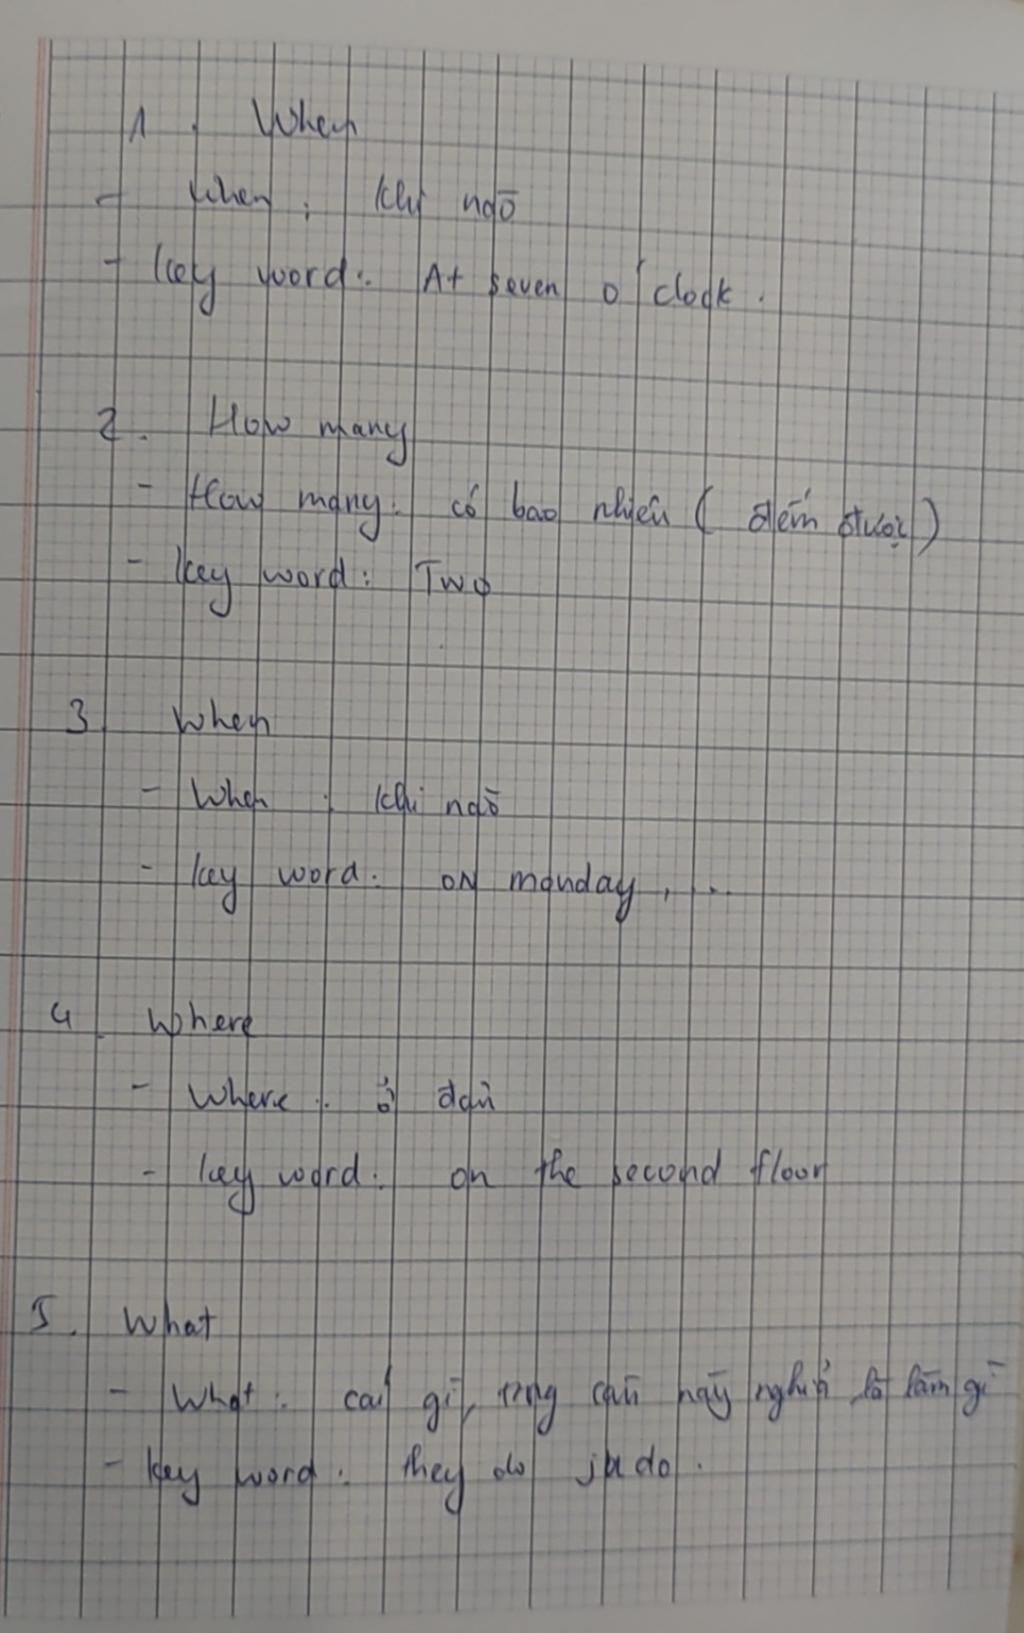 1. When
- When : Khi nào
- Key word : At seven o'clock.
2. How many
- How many : có bao nhiêu ( đếm được )
- Key word : Two
3. When
- When : Khi nào
- Key word : on monday , ..
4. Where
- Where : ở đâu
- Key word : on the second floor
5. What
- What : cái gì, trong câu này nghĩa là làm gì
- Key word : they do judo .